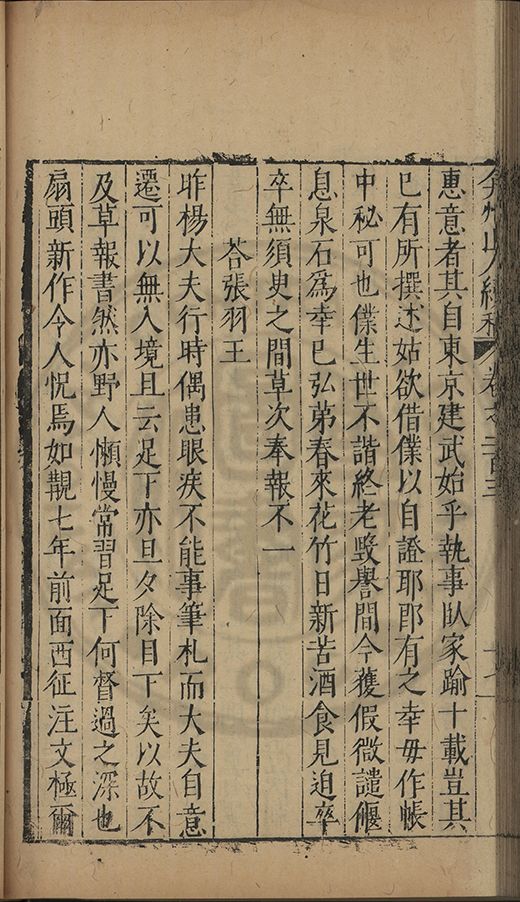 弇州山人續稿 卷之二百三 十七
惠意者其自東京建武始乎執事臥家踰十載豈其
已有所撰述姑欲借僕以自證耶即有之幸毋作帳
中秘可也僕生世不諧終老毀譽間今獲假微譴偃
息泉石為幸已弘弟春來花竹日新苦酒食見迫卒
卒無須臾之間草次奉報不一
荅張羽王
昨楊大夫行時偶患眼疾不能事筆札而大夫自意
遷可以無入境且云足下亦旦夕除目下矣以故不
及草報書然亦野人懶慢常習足下何督過之深也
扇頭新作令人怳焉如覩七年前面西征注文極爾